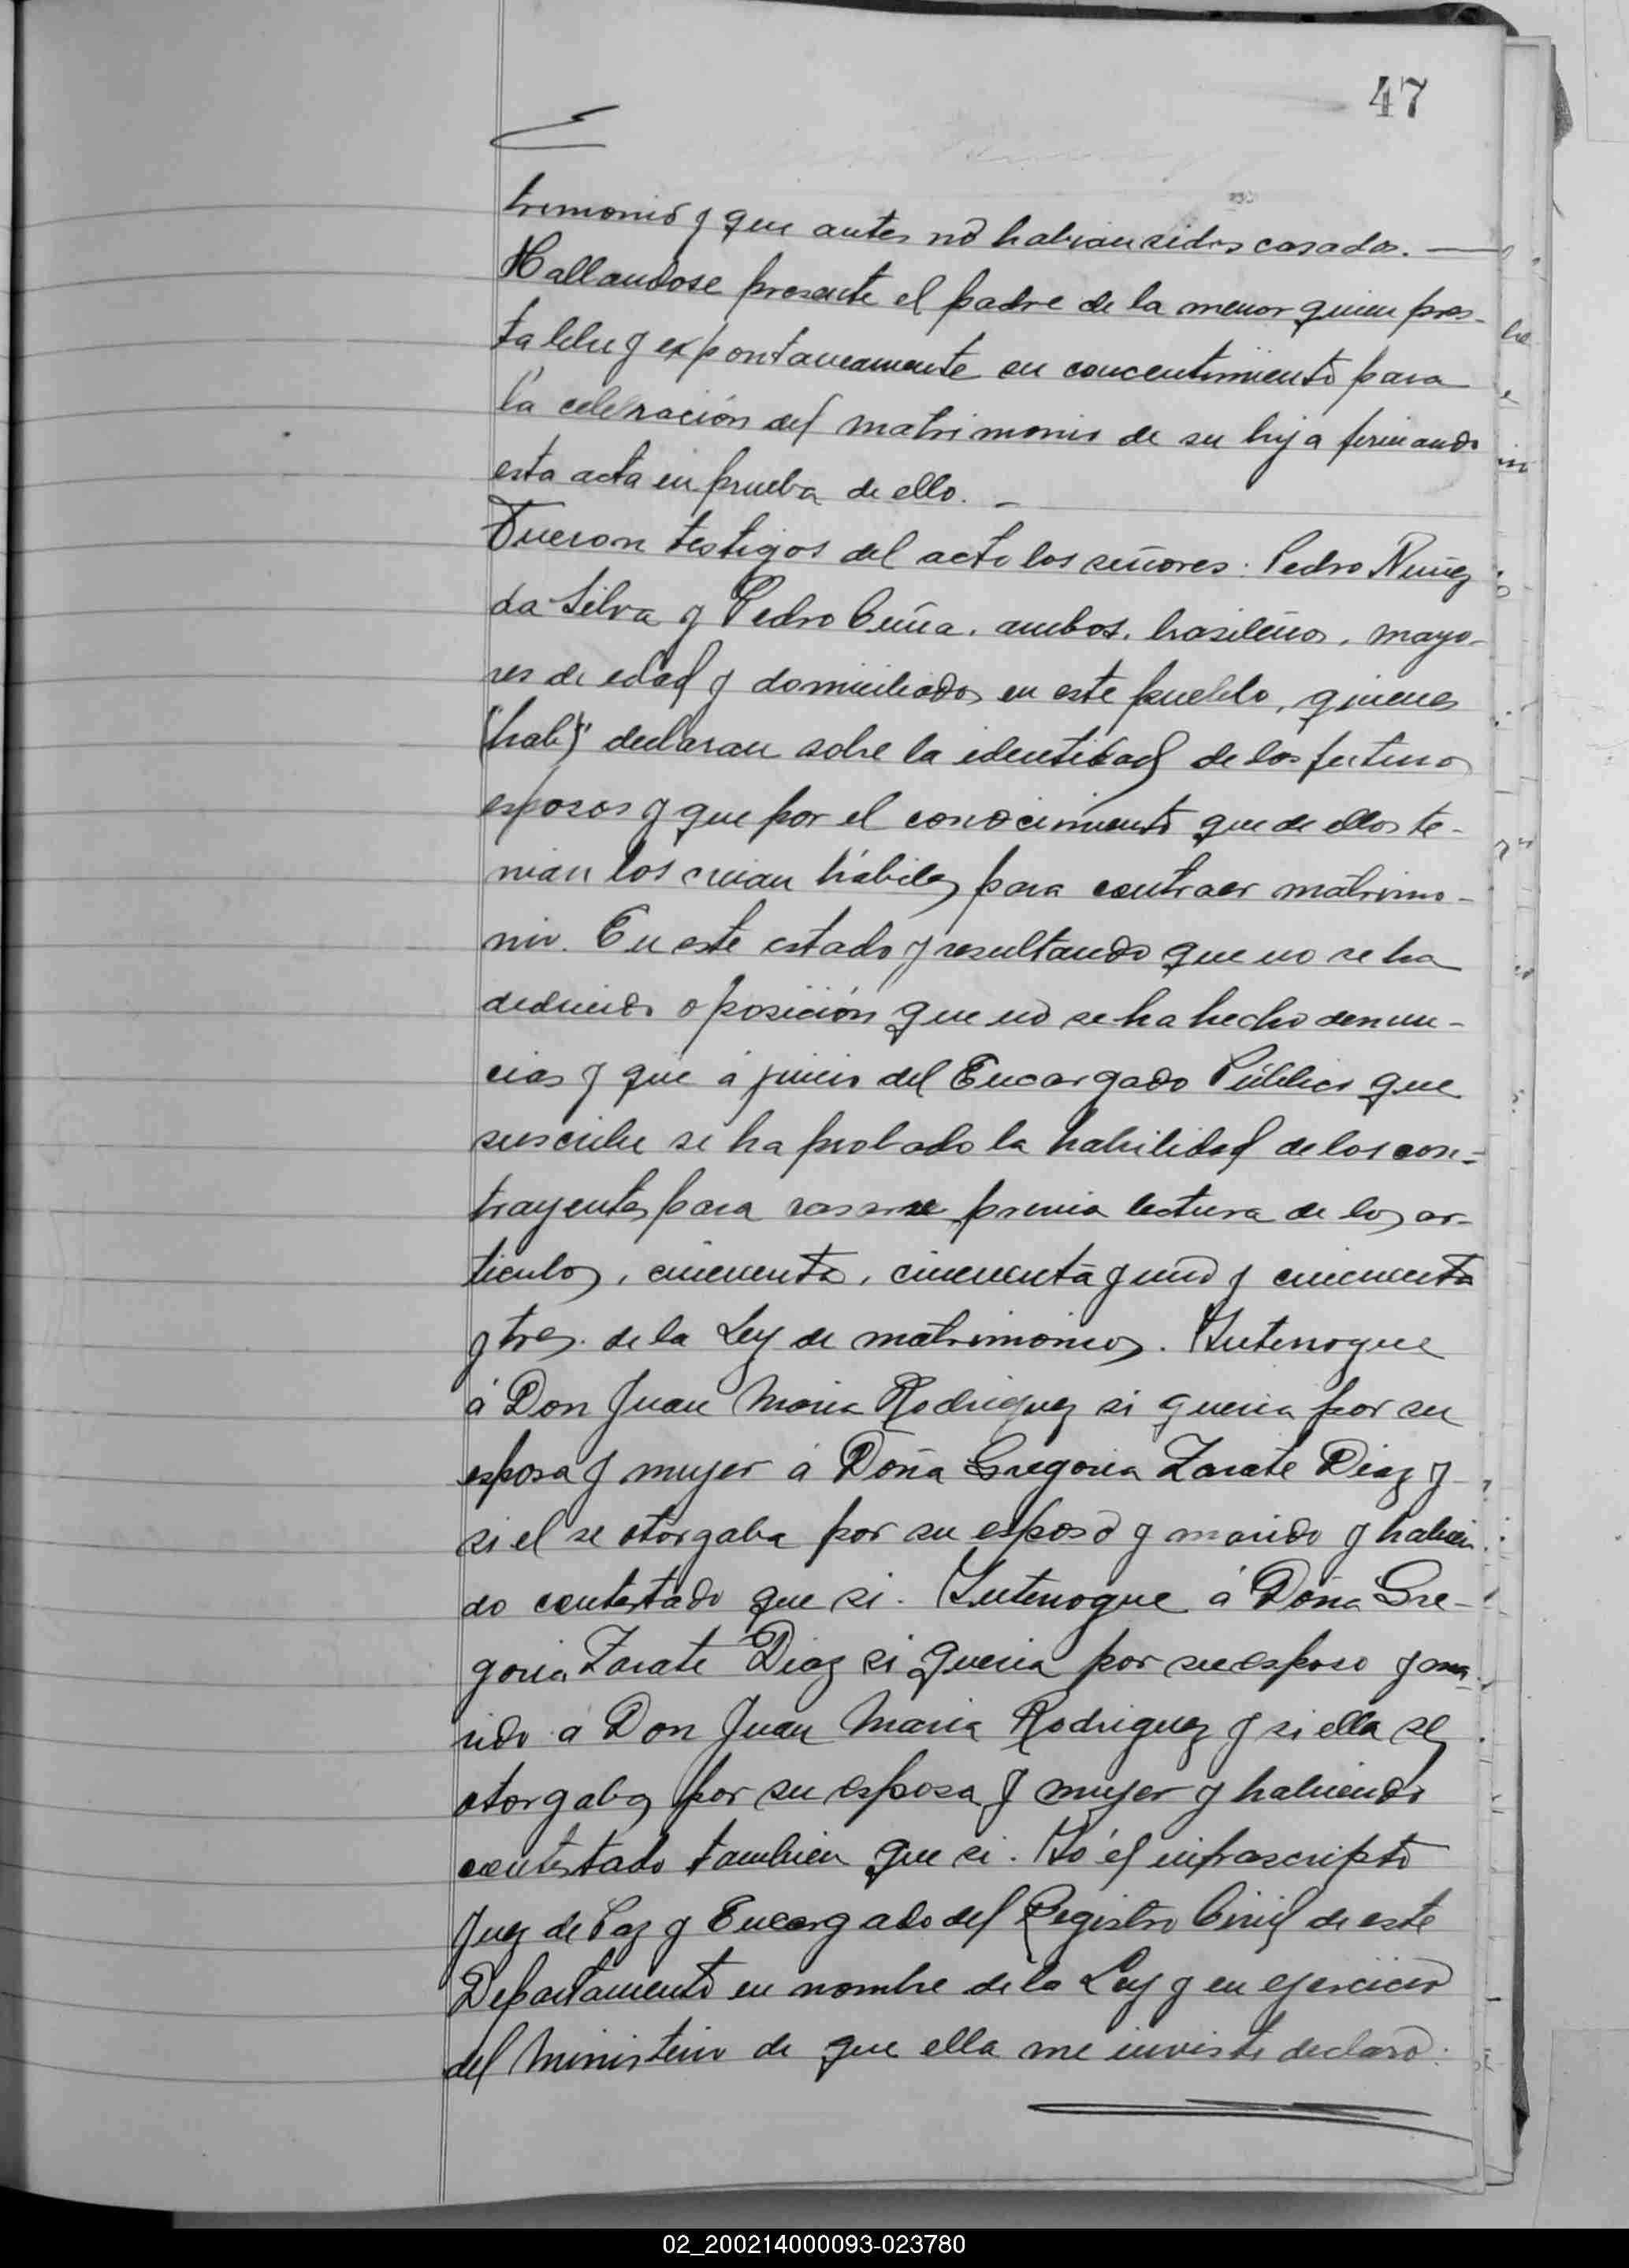 47
trimonio y que antes no habian sidos casados. —
Hallandose presente el padre de la menor quien pres-
ta libre y expontaneamente su concentimiento para
la celebración del matrimonio de su hija firmando
esta acta en prueba de ello. —
Fueron testigos del acto los señores: Pedro Nuñez
da Silva y Pedro Cuña, ambos, brasileños, mayo-
res de edad y domiciliados en este pueblo, quienes
(hab) declaran sobre la identidad de los futuros
esposos y que por el conocimiento que de ellos te-
nian los creian hábiles para contraer matrimo-
nio. En este estado y resultando que no se ha
deducido oposición que no se ha hecho denun-
cias y que á juicio del Encargado Público que
suscribe se ha probado la habilidad de los con-
trayentes para casarse previa lectura de los ar-
ticulos, cincuenta, cincuenta y uno y cincuenta
y tres. de la Ley de matrimonios. Interrogue
á Don Juan Maria Rodriguez si queria por su
esposa y mujer á Doña Gregoria Zarate Diaz y
si el se otorgaba por su esposo y marido y habien
do contestado que si. Interrogue á Doña Gre-
goria Zarate Diaz si queria por su esposo y ma
rido a Don Juan Maria Rodriguez y si ella se
otorgaba por su esposa y mujer y habiendo
contestado tambien que si. Yó él infrascripto
Juez de Paz y Encargado del Registro Civil de este
Departamento en nombre de la Ley y en ejercicio
del Ministerio de que ella me inviste declaro:
02_200214000093-023780